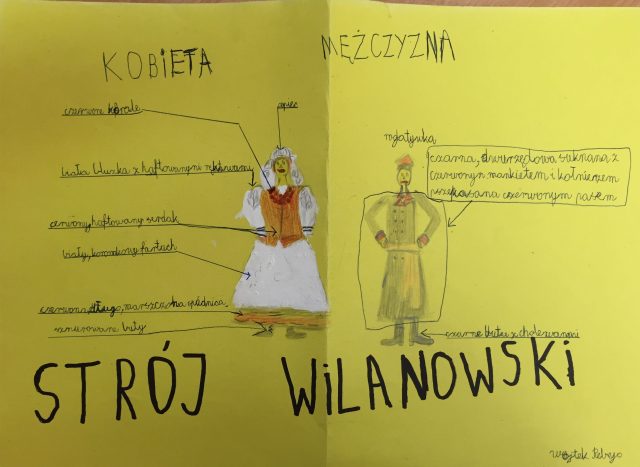 KOBIETA
MĘŻCZYZNA
czerwone korale
czepiec
biała bluzka z haftowanymi rękawami
czerwony haftowany serdak
biały, koronkowy fartuch
czerwona, długa, marszczona spódnica
sznurowane buty
rogatywka
czarna, dwurzędowa sukmana z
czerwonym mankietem i kołnierzem
przepasana czerwonym pasem
czarne buty z cholewami
STRÓJ WILANOWSKI
Wojtek